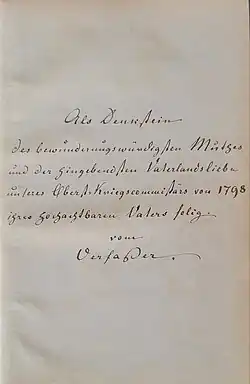 Als Denkstein
des bewunderungswürdigsten Muthes
und der hingebendsten Vaterlandsliebe
unseres Oberst-Kriegscommissärs von 1798
ihres hochachtbaren Vaters selig.
vom
Verfaßer.